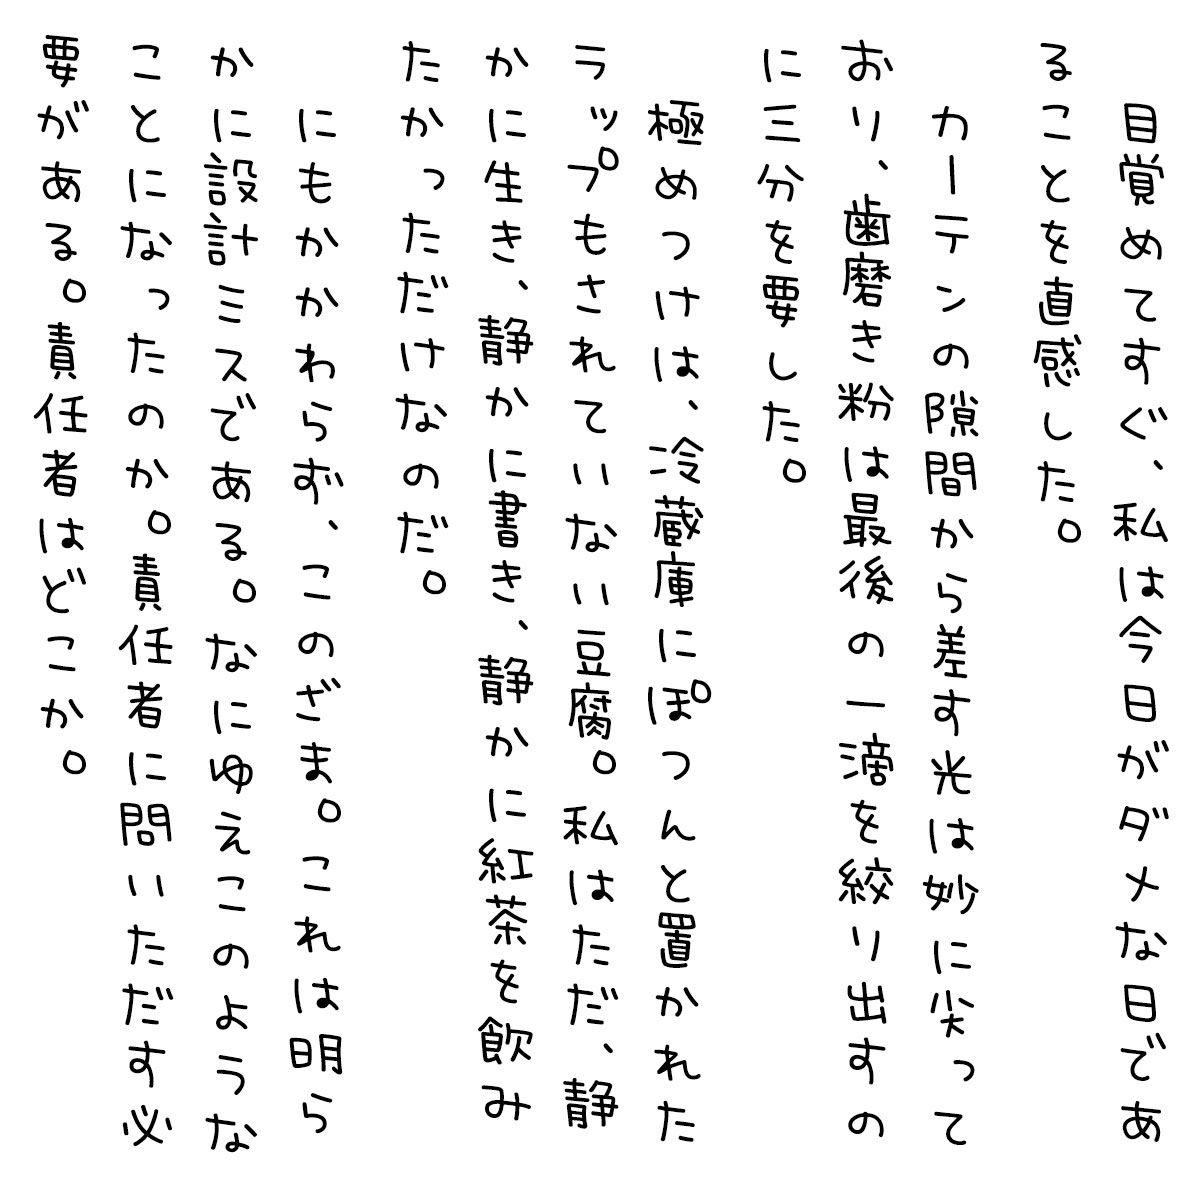 目覚めてすぐ、私は今日がダメな日であ
ることを直感した。
カーテンの隙間から差す光は妙に尖って
おり、歯磨き粉は最後の一滴を絞り出すの
に三分を要した。
極めつけは、冷蔵庫にぽつんと置かれた
ラップもされていない豆腐。私はただ、静
かに生き、静かに書き、静かに紅茶を飲み
たかっただけなのだ。
にもかかわらず、このざま。これは明ら
かに設計ミスである。なにゆえこのような
ことになったのか。責任者に問いただす必
要がある。責任者はどこか。